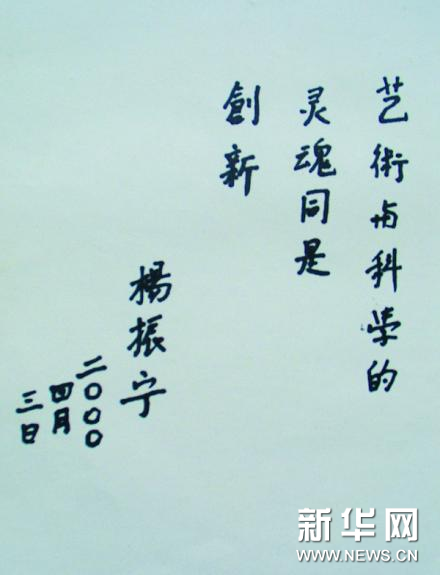 艺術与科学的
灵魂同是
創新
楊振宁
二〇〇〇
四月
三日
新华网
WWW.NEWS.CN